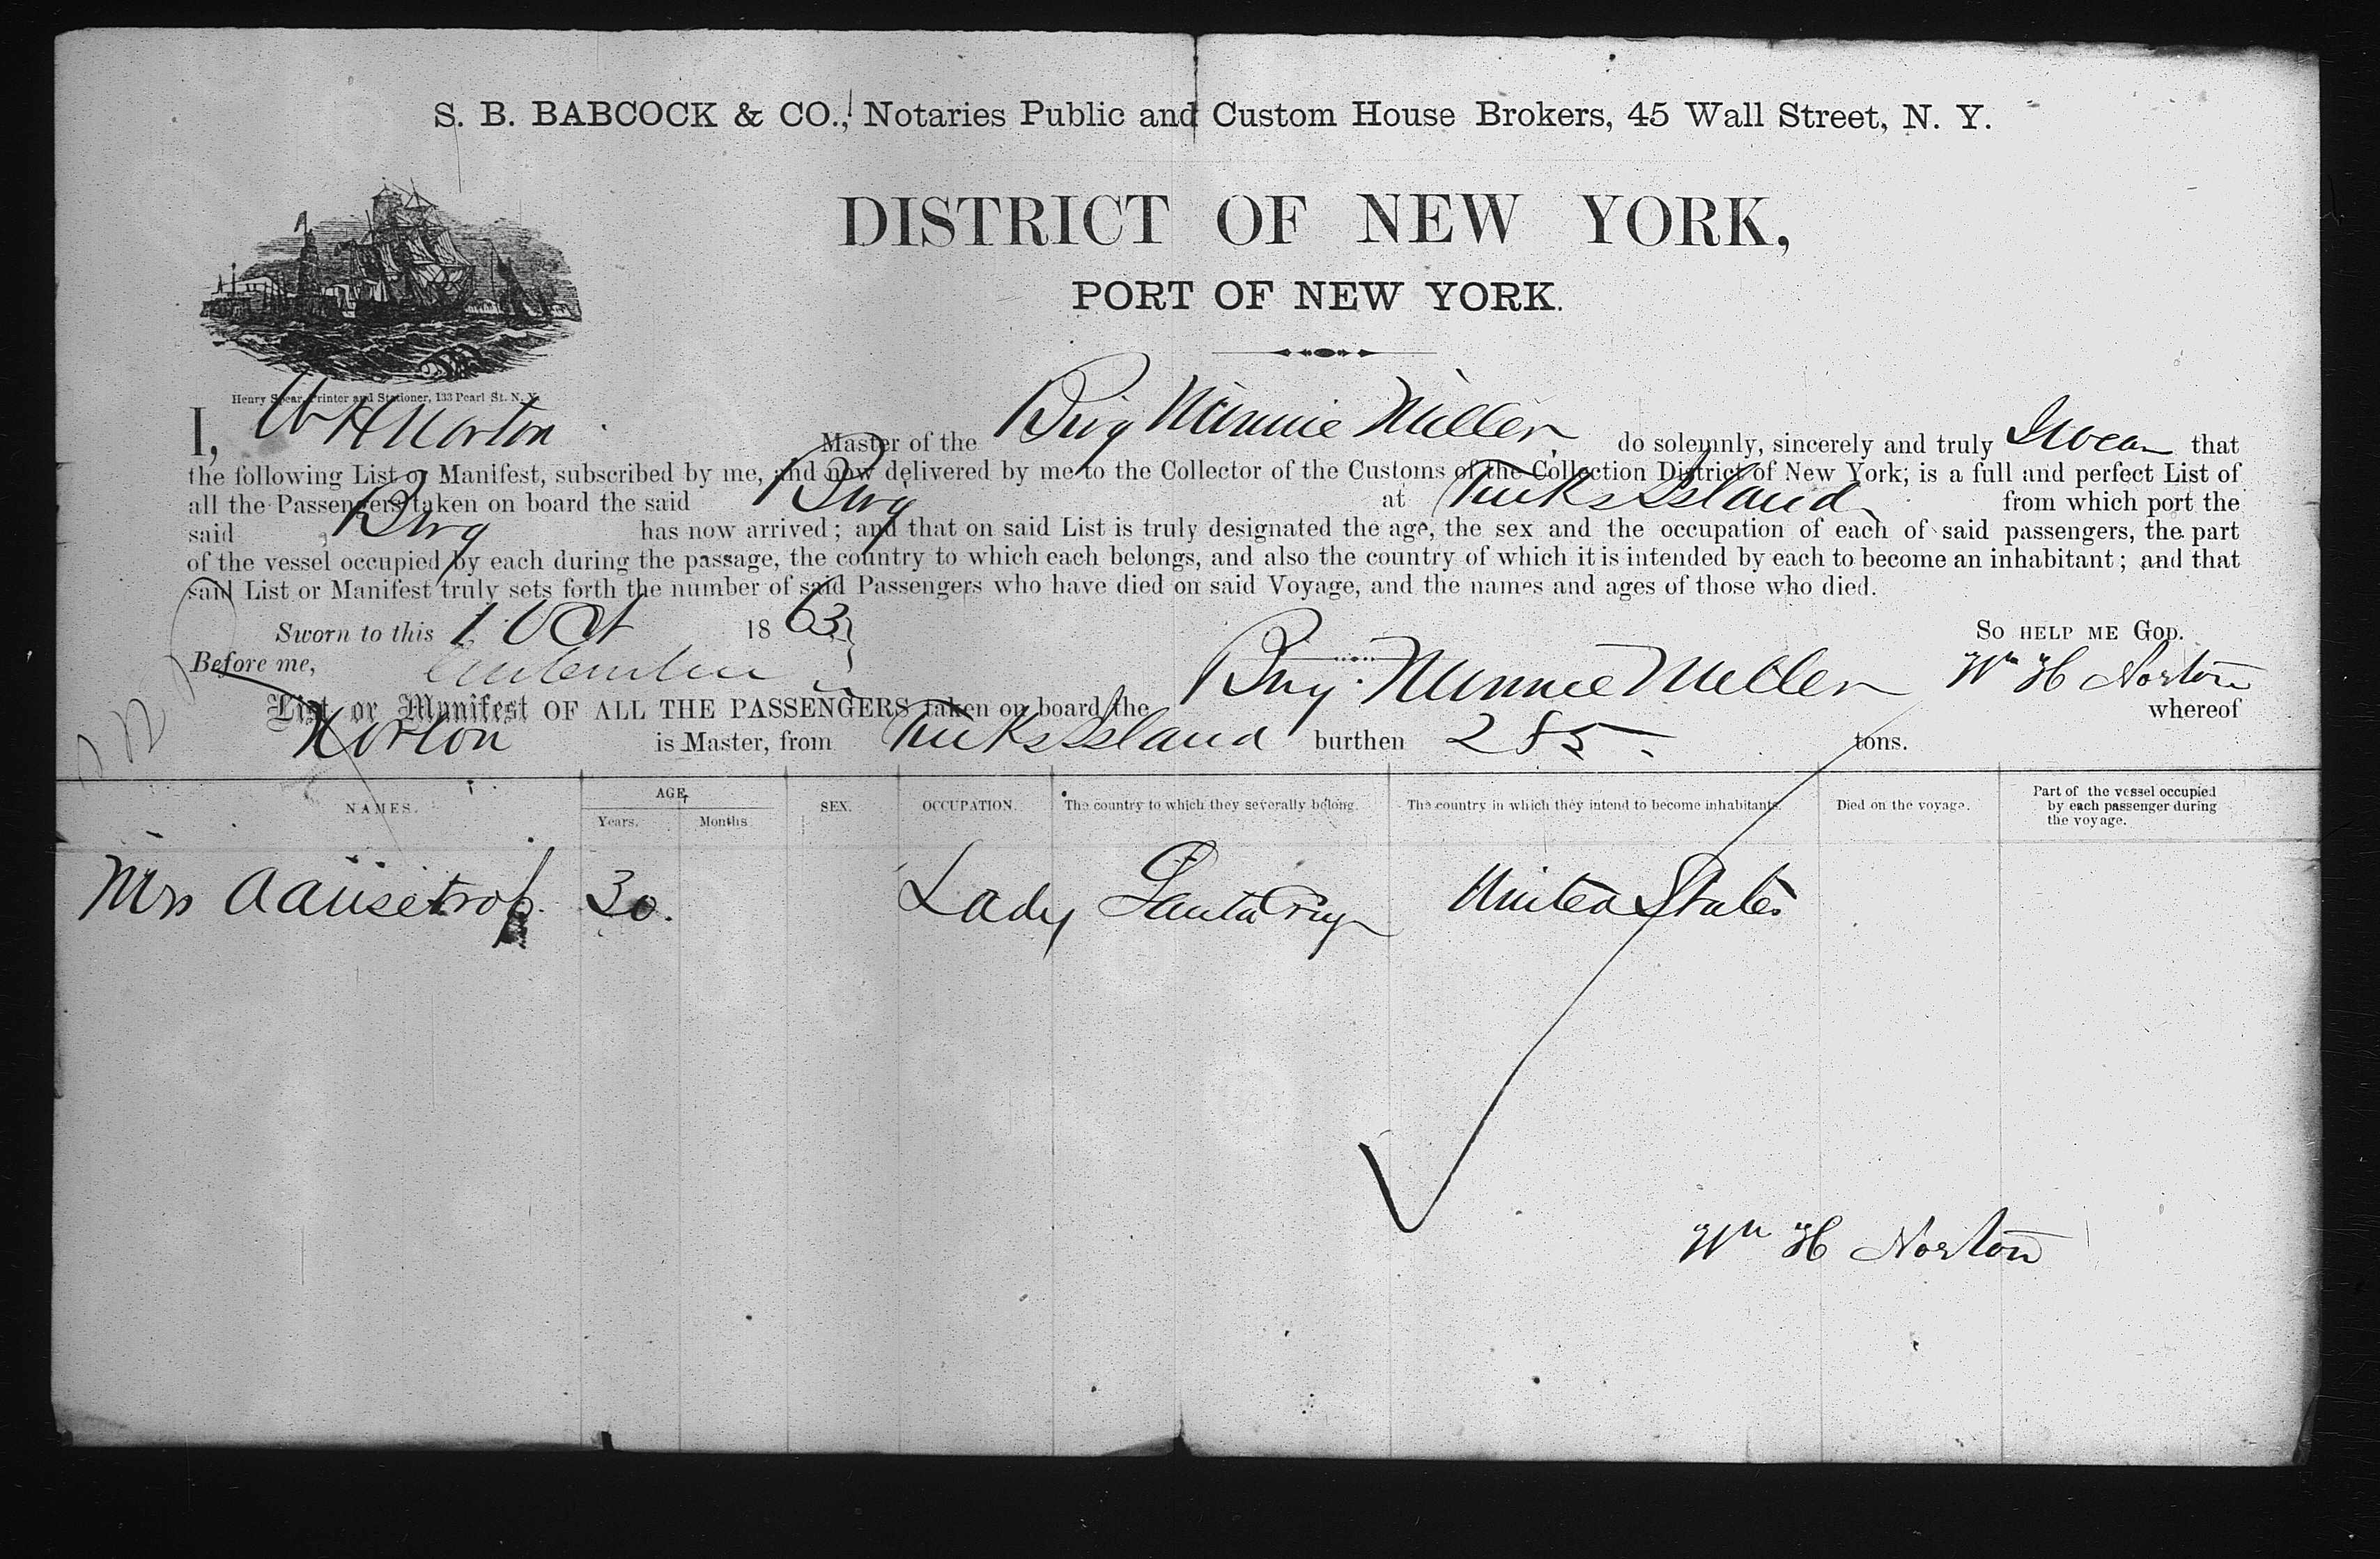 S. B. BABCOCK & CO., Notaries Public and Custom House Brokers, 45 Wall Street, N. Y.
DISTRICT OF NEW YORK,
PORT OF NEW YORK.
Henry Spear, Printer and Stationer, 133 Pearl St. N. Y.
I, W H Norton Master of the Brig Minnie Miller do solemnly, sincerely and truly Swear that
the following List or Manifest, subscribed by me, and now delivered by me to the Collector of the Customs of the Collection District of New York; is a full and perfect List of
all the Passengers taken on board the said Brig at Turks Island from which port the
said Brig has now arrived; and that on said List is truly designated the age, the sex and the occupation of each of said passengers, the part
of the vessel occupied by each during the passage, the country to which each belongs, and also the country of which it is intended by each to become an inhabitant; and that
said List or Manifest truly sets forth the number of said Passengers who have died on said Voyage, and the names and ages of those who died.
Sworn to this 1 Oct 1863 So HELP ME GOD.
Before me, Wm H Norton
List or Manifest OF ALL THE PASSENGERS taken on board the Brig Minnie Miller whereof
Norton is Master, from Turks Island burthen 285 tons.
NAMES. AGE, Years. Months. SEX. OCCUPATION. The country to which they severally belong. The country in which they intend to become inhabitants. Died on the voyage. Part of the vessel occupied by each passenger during the voyage.
Mrs 30. Lady Santa Cruz United States
Wm H Norton